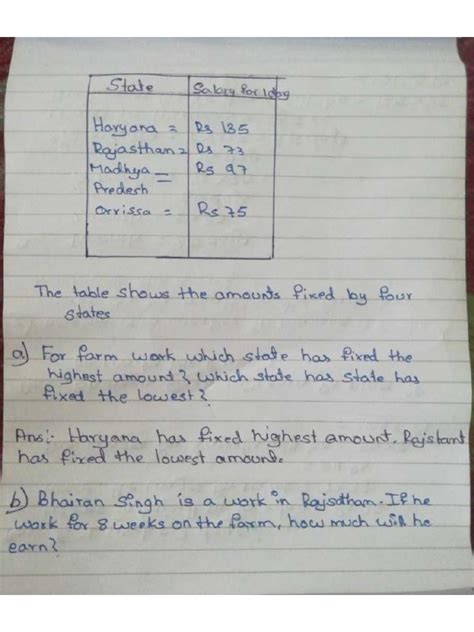 State Salary for 1 day
Haryana = Rs 135
Rajasthan = Rs 73
Madhya = Rs 97
Predesh
Orrissa = Rs 75
The table shows the amounts fixed by four
states
a) For farm work which state has fixed the
highest amount? which state has state has
fixed the lowest?
Ans:- Haryana has fixed highest amount. Rajstant
has fixed the lowest amount.
b) Bhairan Singh is a work in Rajsthan. If he
work for 8 weeks on the farm, how much will he
earn?